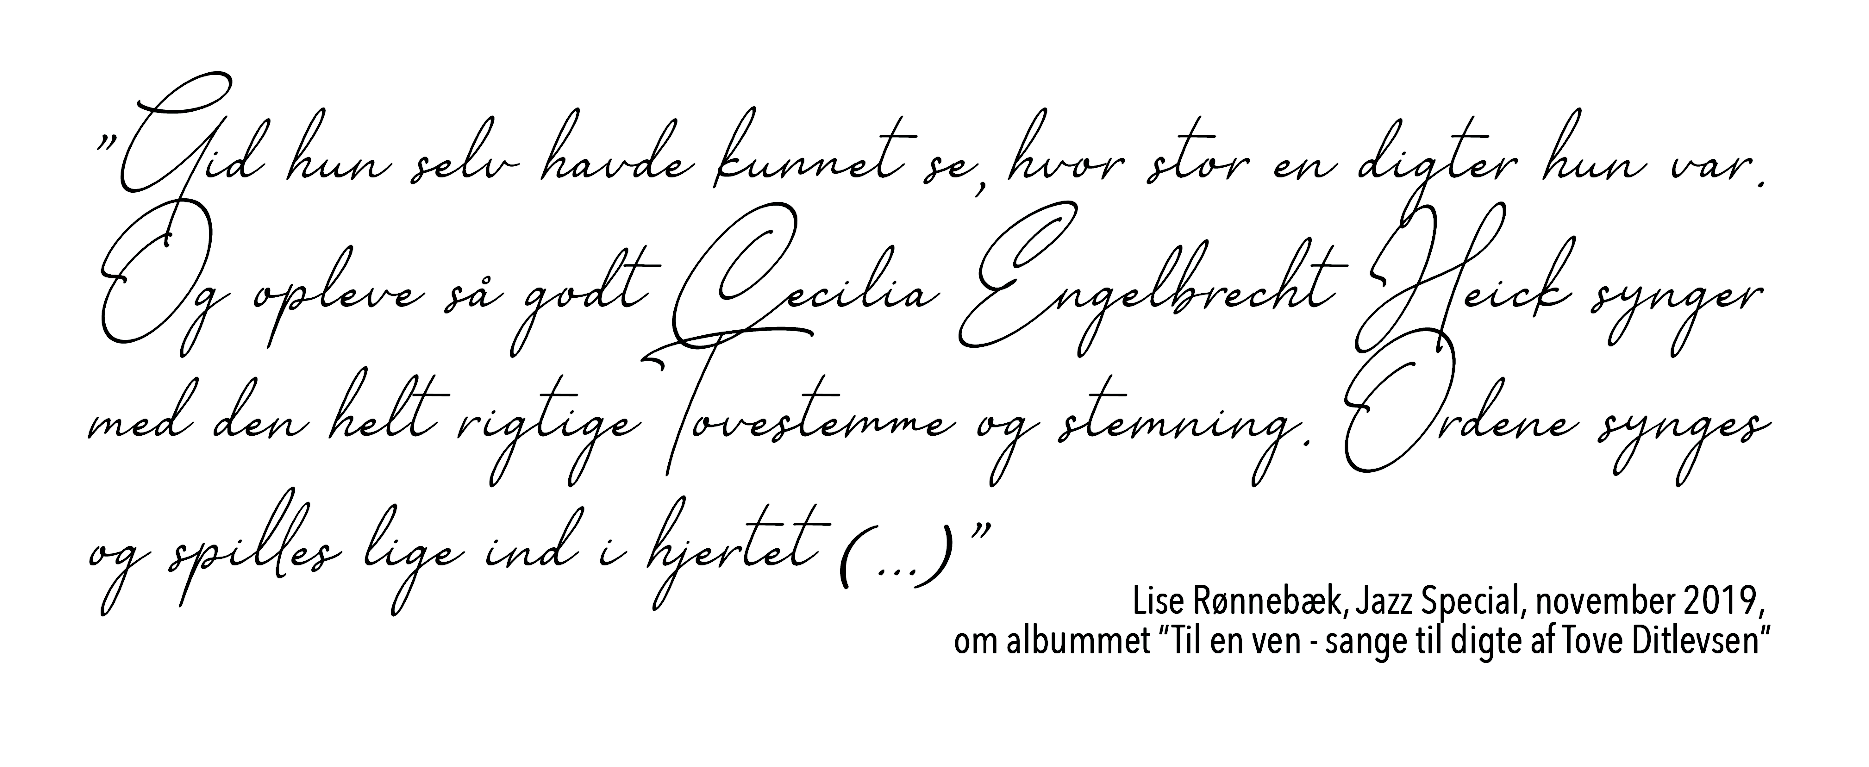 ”Gid hun selv havde kunnet se, hvor stor en digter hun var.
Og opleve så godt Cecilia Engelbrecht Heick synger
med den helt rigtige Tovestemme og stemning. Ordene synges
og spilles lige ind i hjertet (...)”
Lise Rønnebæk, Jazz Special, november 2019,
om albummet "Til en ven - sange til digte af Tove Ditlevsen"